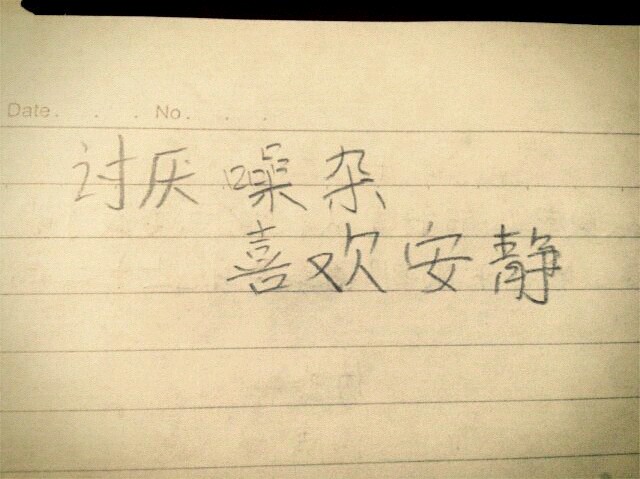 Date. . . No. . . .
讨厌噪杂
喜欢安静